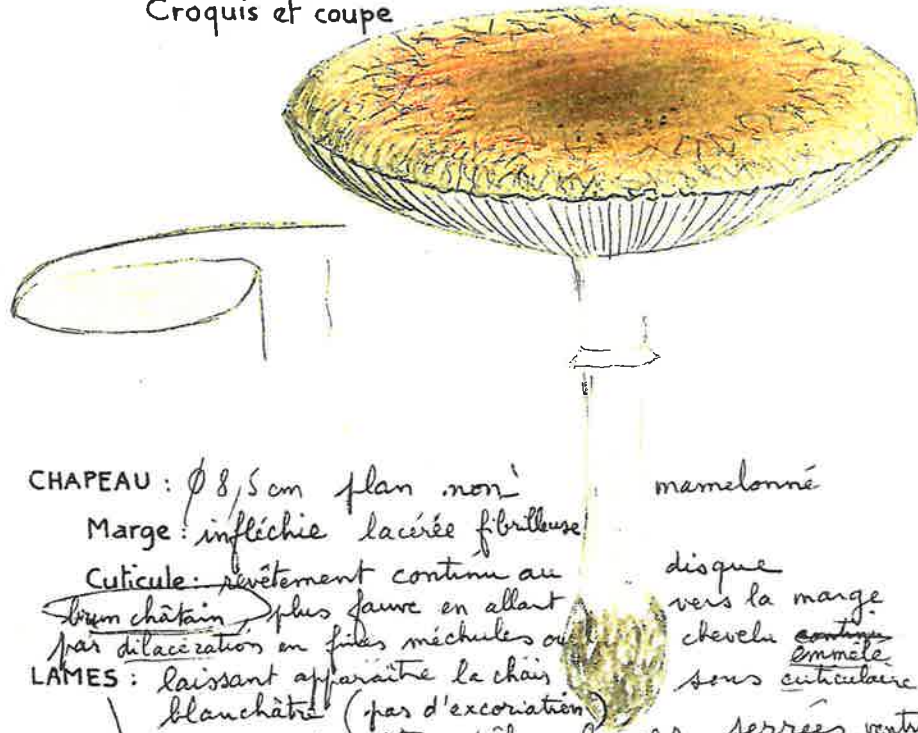 Croquis et coupe
CHAPEAU : ϕ 8,5 cm plan non mamelonné
Marge : infléchie lacérée fibrilleuse
Cuticule : revêtement continu au disque
brun châtain, plus fauve en allant vers la marge
par dilacération en fines méchules ou chevelu continu emmêlé
LAMES : laissant apparaître la chair sous cuticulaire
blanchâtre (pas d'excoriation)
serrées